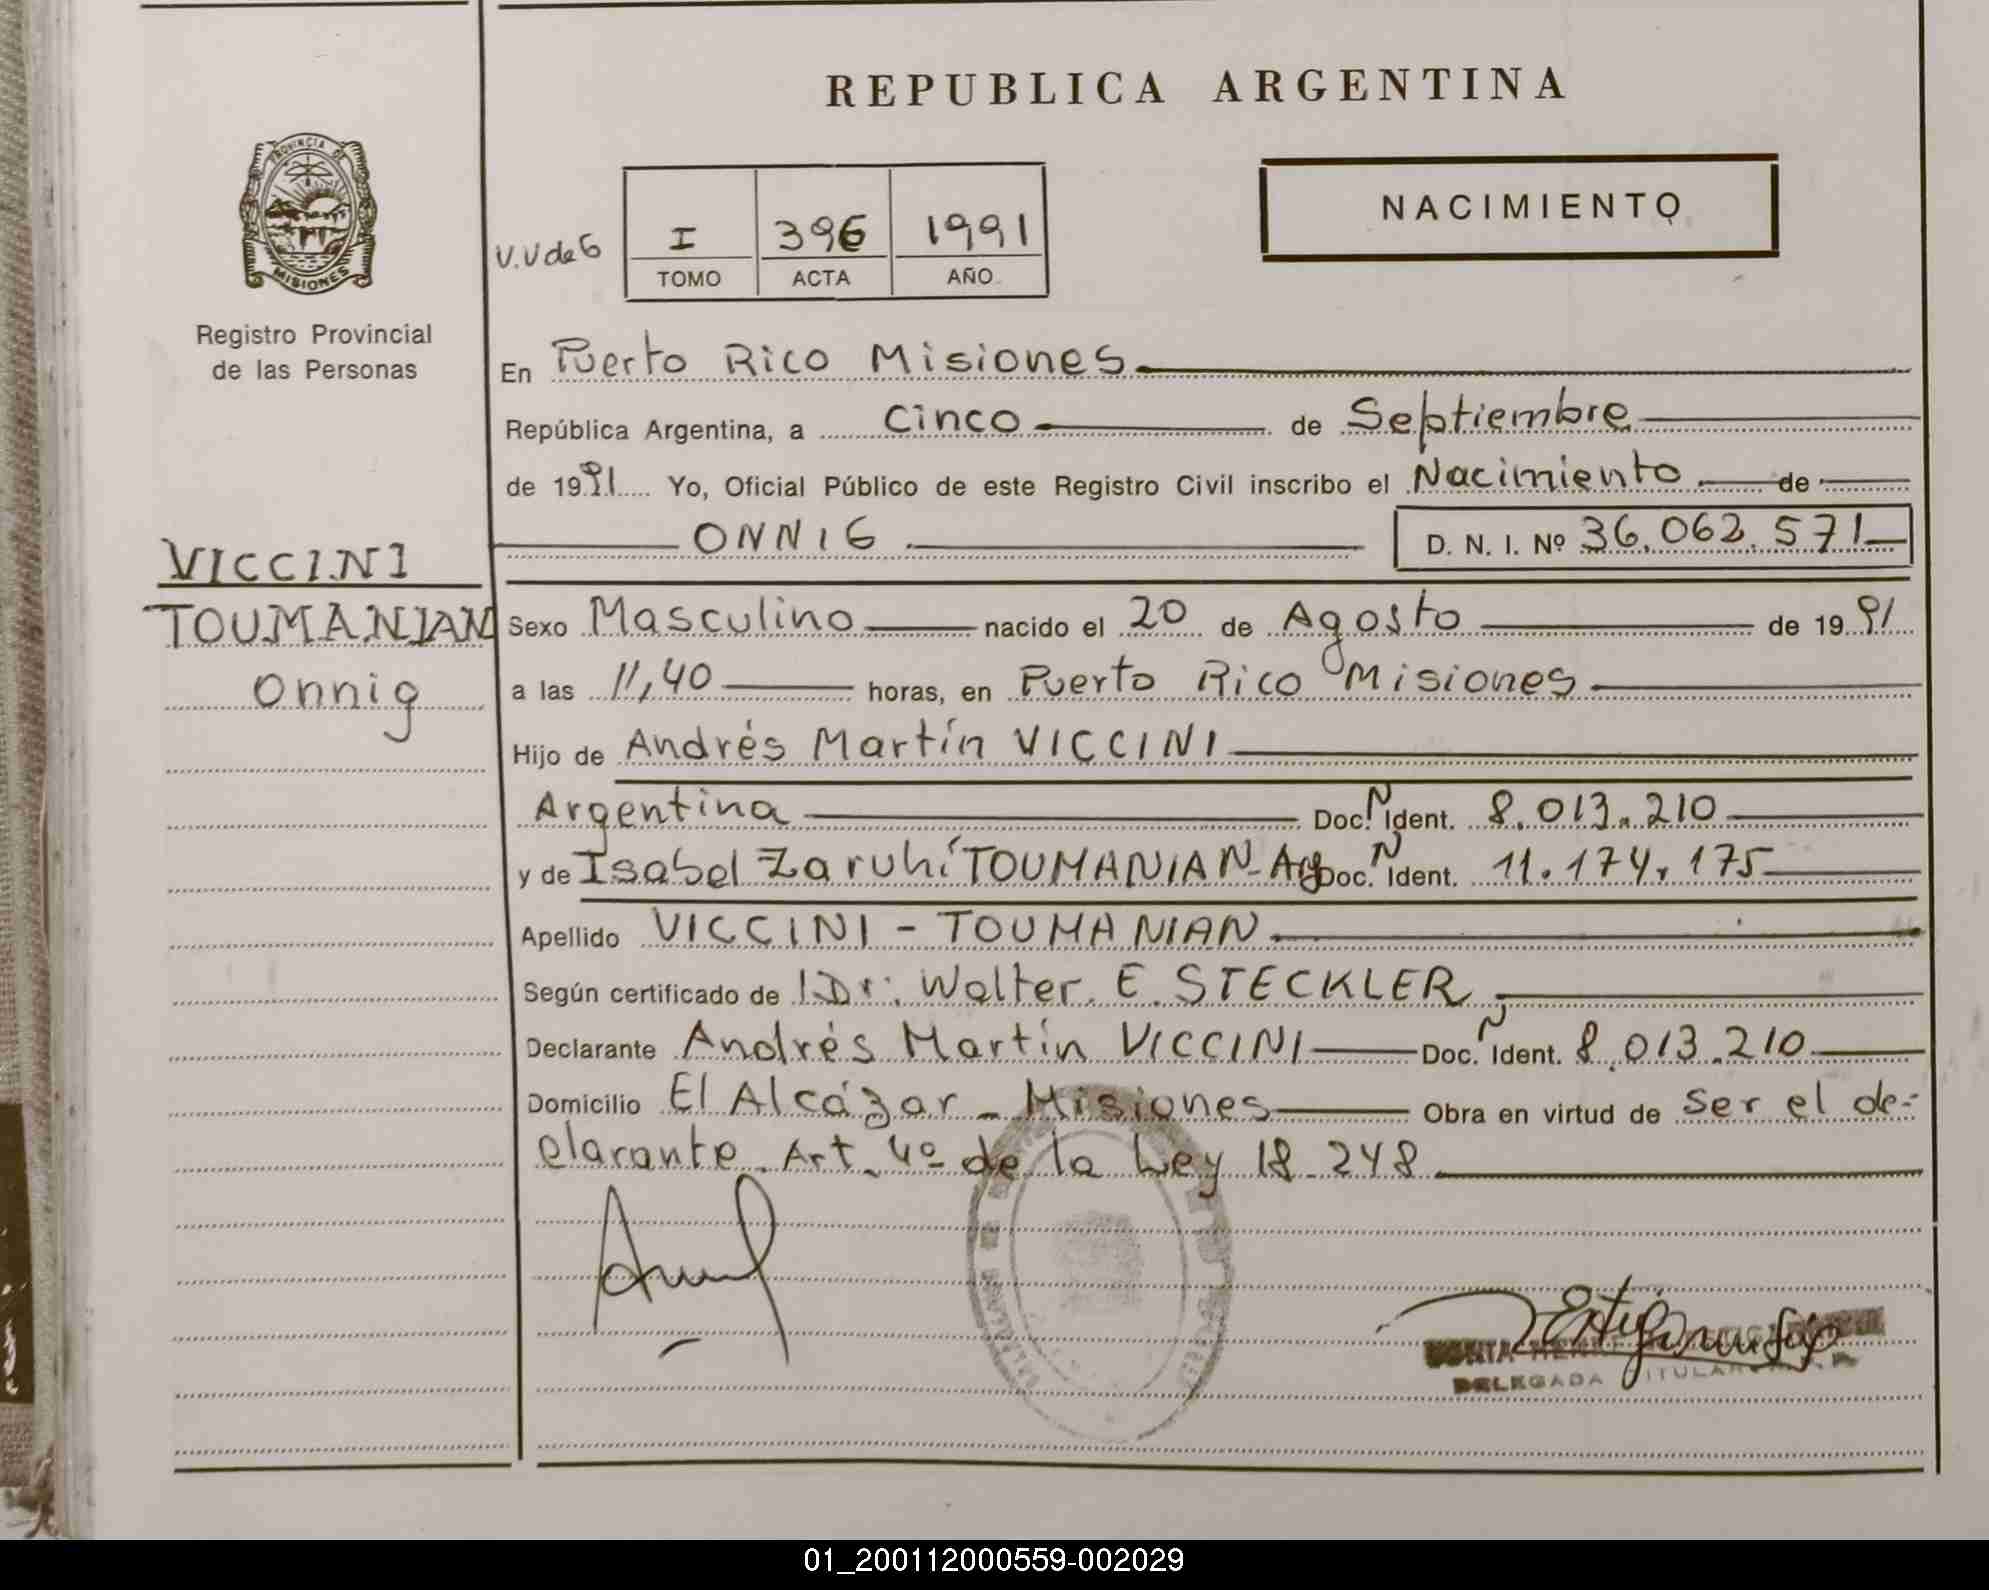 REPUBLICA ARGENTINA
NACIMIENTO
PROVINCIA DE
MISIONES
Registro Provincial
de las Personas
V.V de G
I 396 1991
TOMO ACTA AÑO
En Puerto Rico Misiones
República Argentina, a Cinco de Septiembre
de 1991 Yo, Oficial Público de este Registro Civil inscribo el Nacimiento de
ONNIG D. N. I. Nº 36.062.571
VICCINI
TOUMANIAN
Onnig
Sexo Masculino nacido el 20 de Agosto de 1991
a las 11,40 horas, en Puerto Rico Misiones
Hijo de Andrés Martín VICCINI
Argentina Doc. N Ident. 8.013.210
y de Isabel Zaruhí TOUMANIAN - Arg Doc. N Ident. 11.174.175
Apellido VICCINI - TOUMANIAN
Según certificado de Dr. Walter E. STECKLER
Declarante Andrés Martín VICCINI Doc. N Ident. 8.013.210
Domicilio El Alcázar - Misiones Obra en virtud de ser el de-
clarante. Art. 4º de la Ley 18.248
DELEGADA TITULAR
01_200112000559-002029